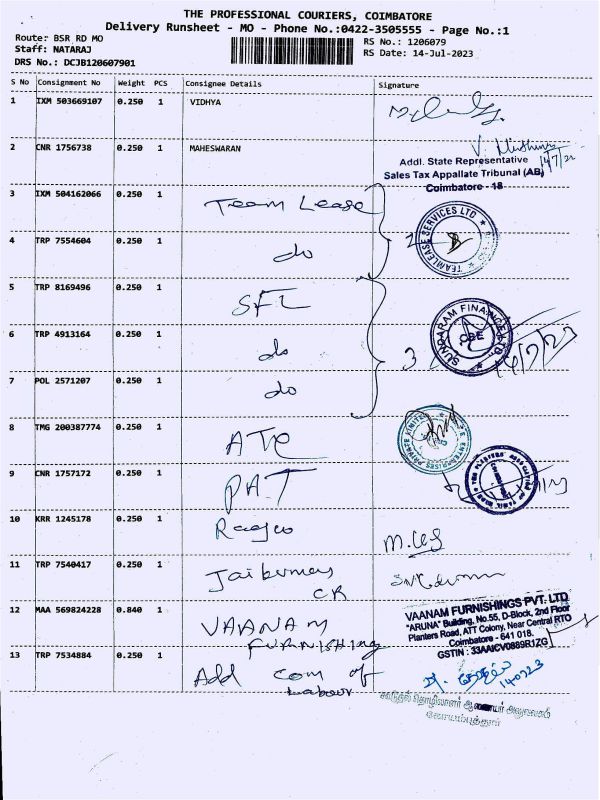 THE PROFESSIONAL COURIERS, COIMBATORE
Delivery Runsheet - MO - Phone No.:0422-3505555 - Page No.:1
Route: BSR RD MO
Staff: NATARAJ
DRS No.: DCJB120607901
RS No.: 1206079
RS Date: 14-Jul-2023
S No Consignment No Weight PCS Consignee Details Signature
1 IXM 503669107 0.250 1 VIDHYA
2 CNR 1756738 0.250 1 MAHESWARAN
Addl. State Representative
Sales Tax Appallate Tribunal (AB)
Coimbatore - 18
3 IXM 504162066 0.250 1 Team Lease
TEAMLEASE SERVICES LTD
4 TRP 7554604 0.250 1 do
2
5 TRP 8169496 0.250 1 SFL
6 TRP 4913164 0.250 1 do
SUNDARAM FINANCE LTD
CBE
3
7 POL 2571207 0.250 1 do
8 TMG 200387774 0.250 1 ATE
ENTERPRISES PRIVATE LIMITED
9 CNR 1757172 0.250 1 PAT
10 KRR 1245178 0.250 1
11 TRP 7540417 0.250 1 Jaikumar
CR
12 MAA 569824228 0.840 1 VAANAM
FURNISHING
VAANAM FURNISHINGS PVT. LTD
"ARUNA" Building, No.55, D-Block, 2nd Floor
Planters Road, ATT Colony, Near Central RTO
Coimbatore - 641 018.
GSTIN : 33AAICV0889R1ZG
13 TRP 7534884 0.250 1 Add Com of
Labour
140723
கூடுதல் தொழிலாளர் ஆணையர் அலுவலகம்
கோயம்புத்தூர்